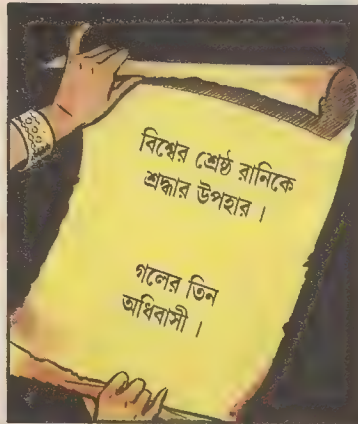 বিশ্বের শ্রেষ্ঠ রানিকে
শ্রদ্ধার উপহার ।
গলের তিন
অধিবাসী ।